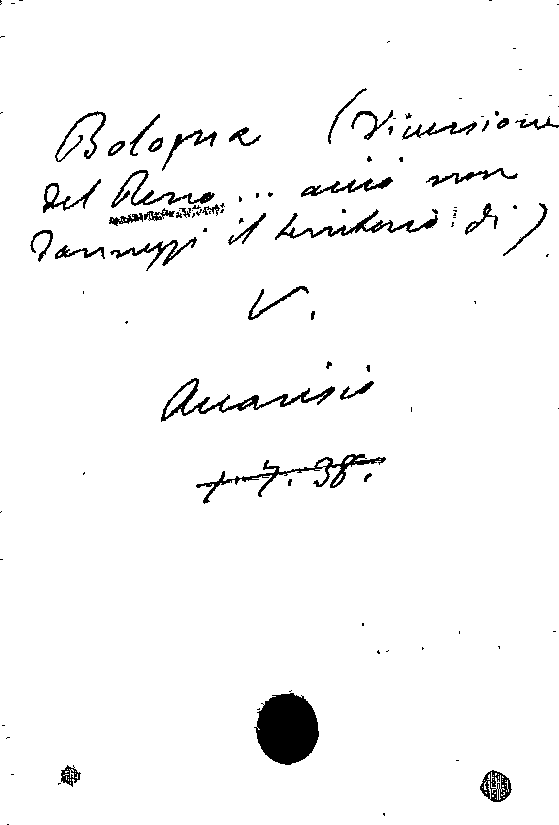 Bologna (Diversione
del Reno... acciò non
danneggi il territorio di)
V.
Accarisio
1. 7. 38.